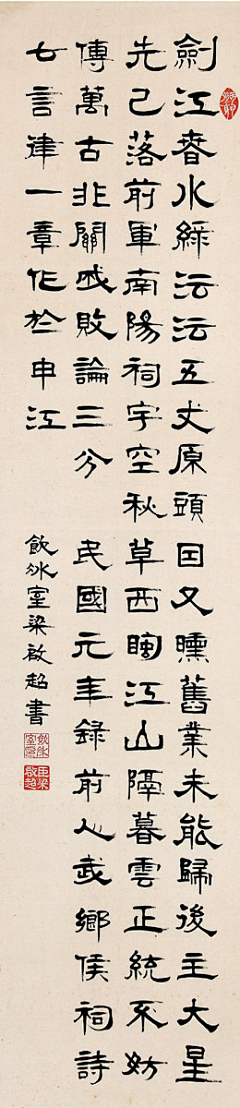 劍江春水綠沄沄五丈原頭日又曛舊業未能歸後主大星
先已落前軍南陽祠宇空秋草西江山隔暮雲正統不妨
傳萬古非關成敗論三分 民國元年錄前人武鄉侯祠詩
七言律一章作於申江 飲冰室梁啟超書